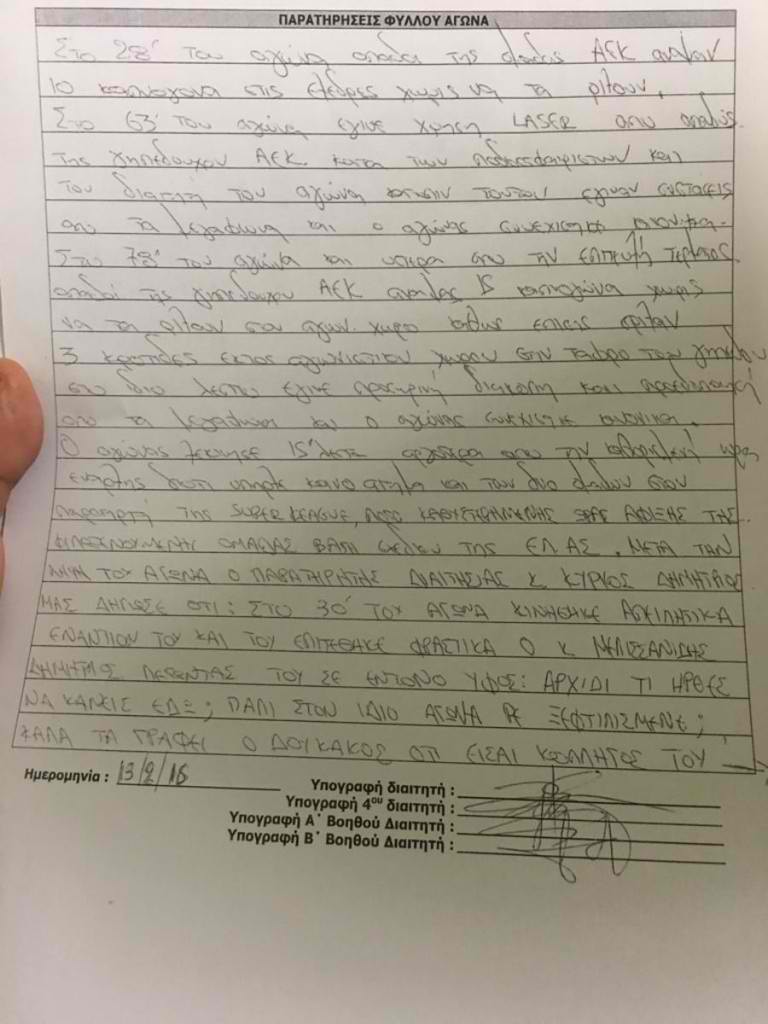 ΠΑΡΑΤΗΡΗΣΕΙΣ ΦΥΛΛΟΥ ΑΓΩΝΑ
Στο 28' του αγώνα οπαδοι της ΑΕΚ αναψαν
10 καπνογονα στις χωρις να τα ριξουν.
Στο 63' του αγώνα εγινε χρηση LASER απο οπαδους
της γηπεδουχου ΑΕΚ κατα των ποδοσφαιριστων και
του διαιτητή του αγώνα τουτου εγιναν συστασεις
απο τα μεγαφωνα και ο αγώνας συνεχιστηκε κανονικα.
Στο 78' του αγώνα και υστερα απο την επιτευξη τερματος
οπαδοί της γηπεδουχου ΑΕΚ αναψαν 15 καπνογόνα χωρίς
να τα ριξουν στον αγων. χωρο καθως επισης ερριξαν
3 κροτιδες εκτος αγωνιστικου χωρου στο του γηπεδου
στο ιδιο λεπτο εγινε διακοπη και
απο τα μεγαφωνα και ο αγώνας συνεχιστηκε κανονικα.
Ο αγώνας ξεκινησε 15' λεπτα αργοτερα απο την καθορισμενη ωρα
εναρξης διοτι υπηρξε κοινο αιτημα και των δυο στον
παρατηρητή της SUPER LEAGUE, ΛΟΓΩ ΚΑΘΥΣΤΕΡΗΜΕΝΗΣ ΑΦΙΞΗΣ ΤΗΣ
ΦΙΛΟΞΕΝΟΥΜΕΝΗΣ ΟΜΑΔΑΣ ΒΑΣΗ σχεδιου της ΕΛ.ΑΣ. ΜΕΤΑ ΤΗΝ
ΛΗΞΗ ΤΟΥ ΑΓΩΝΑ Ο ΠΑΡΑΤΗΡΗΤΗΣ ΔΙΑΙΤΗΣΙΑΣ Κ. ΚΥΡΚΟΣ ΔΗΜΗΤΡΙΟΣ
ΜΑΣ ΔΗΛΩΣΕ ΟΤΙ: ΣΤΟ 30' ΤΟΥ ΑΓΩΝΑ ΚΙΝΗΘΗΚΕ ΑΠΕΙΛΗΤΙΚΑ
ΕΝΑΝΤΙΟΝ ΤΟΥ ΚΑΙ ΤΟΥ ΕΠΙΤΕΘΗΚΕ ΦΡΑΣΤΙΚΑ Ο Κ ΜΕΛΙΣΣΑΝΙΔΗΣ
ΔΗΜΗΤΡΙΟΣ ΛΕΓΟΝΤΑΣ ΤΟΥ ΣΕ ΕΝΤΟΝΟ ΥΦΟΣ: ΑΡΧΙΔΙ ΤΙ ΗΡΘΕΣ
ΝΑ ΚΑΝΕΙΣ ΕΔΩ; ΠΑΛΙ ΣΤΟΝ ΙΔΙΟ ΑΓΩΝΑ ΡΕ ΞΕΦΤΙΛΙΣΜΕΝΕ;
ΚΑΛΑ ΤΑ ΓΡΑΦΕΙ Ο ΔΟΥΚΑΚΟΣ ΟΤΙ ΕΙΣΑΙ ΚΩΛΛΗΤΟΣ ΤΟΥ →
Ημερομηνία : 13/2/16
Υπογραφή διαιτητή :
Υπογραφή 4ου διαιτητή :
Υπογραφή Α΄ Βοηθού Διαιτητή :
Υπογραφή Β΄ Βοηθού Διαιτητή :